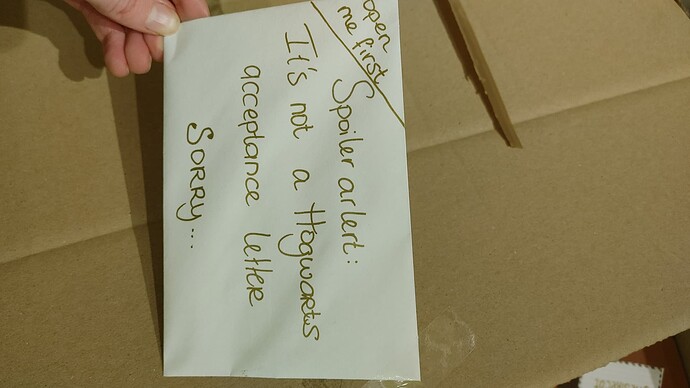 open
me first
Spoiler arlert:
It's not a Hogwarts
acceptance letter
SORRY...